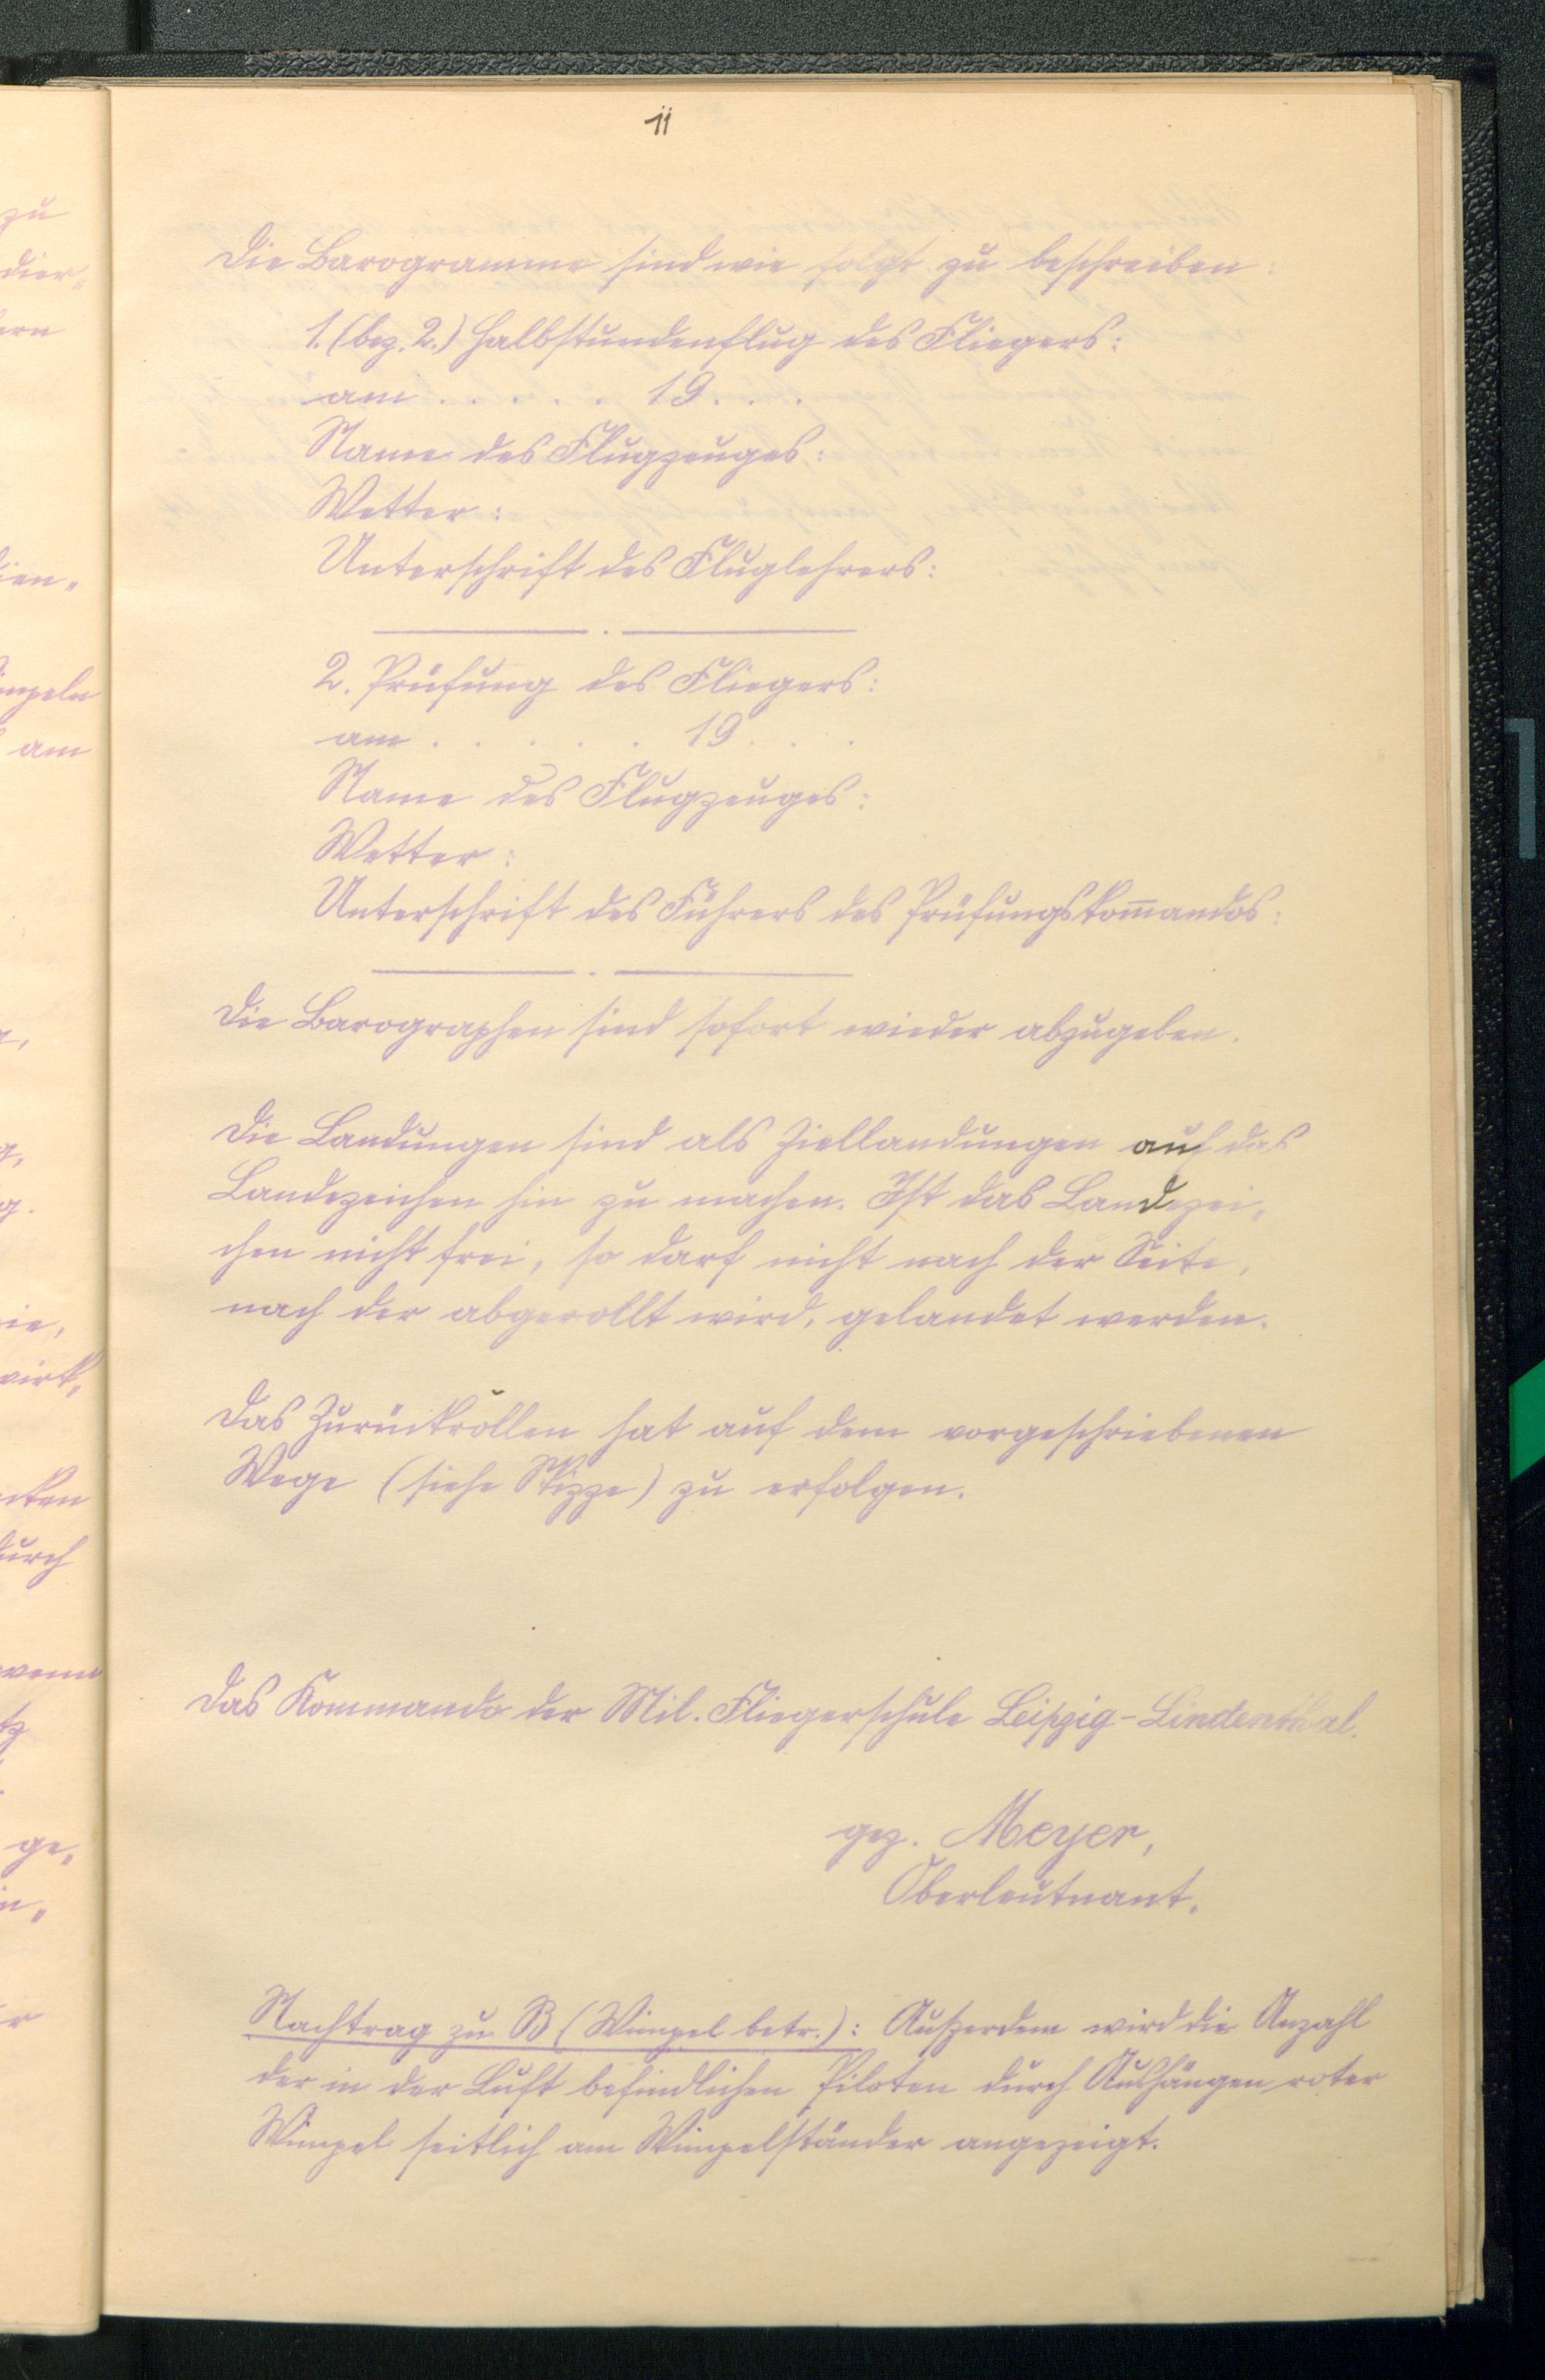 11
Die Barogramme sind wie folgt zu beschreiben:
1. (bez. 2.) Halbstundenflug des Fliegers:
am . . . . . 19 . . .
Name des Flugzeuges:
Wetter:
Unterschrift des Fluglehrers:
2. Prüfung des Fliegers:
am . . . . . 19 . . .
Name des Flugzeuges:
Wetter:
Unterschrift des Führers des Prüfungskom̅andos:
Die Barographen sind sofort wieder abzugeben.
Die Landungen sind als Ziellandungen auf das
Landezeichen hin zu machen. Ist das Landezei„
chen nicht frei, so darf nicht nach der Seite,
nach der abgerollt wird, gelandet werden.
Das Zurückrollen hat auf dem vorgeschriebenen
Wege (siehe Skizze) zu erfolgen.
Das Kommando der Mil. Fliegerschule Leipzig-Lindenthal.
gez. Meyer,
Oberleutnant.
Nachtrag zu B (Wimpel betr.): Außerdem wird die Anzahl
der in der Luft befindlichen Piloten durch Aushängen roter
Wimpel seitlich am Wimpelständer angezeigt.